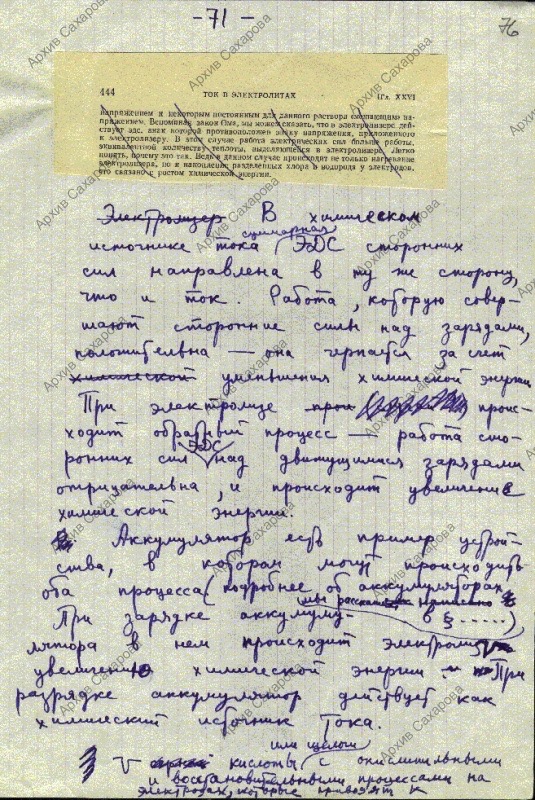 - 71 -
76
444 ТОК В ЭЛЕКТРОЛИТАХ [Гл. XXVI
напряжением и некоторым постоянным для данного раствора смещающим на-
пряжением. Вспоминая закон Ома, мы можем сказать, что в электролизере дей-
ствует эдс, знак которой противоположен знаку напряжения, приложенного
к электролизеру. В этом случае работа электрических сил больше работы,
эквивалентной количеству теплоты, выделяющейся в электролизере. Легко
понять, почему это так. Ведь в данном случае происходит не только нагревание
электролизера, но и накопление разделенных хлора и водорода у электродов,
что связано с ростом химической энергии.
Электролизер В химическом
суммарная
источнике тока ЭДС сторонних
сил направлена в ту же сторону,
что и ток. Работа, которую совер-
шают сторонние силы над зарядами,
положительна — она черпается за счет
химической уменьшения химической энергии
При электролизе проис-
ходит обратный процесс — работа сто-
ЭДС
ронних сил над движущимися зарядами
отрицательна, и происходит увеличение
химической энергии.
Аккумулятор есть пример устрой-
ства, в котором могут происходить
оба процесса (подробнее об аккумуляторах
мы
в § ......)
При зарядке аккумуля-
лятора в нем происходит электролиз
увеличение химической энергии При
разрядке аккумулятор действует как
химический источник тока.
или щелочи
кислоты с окислительными
и восстановительными процессами на
электродах, которые приводят к
Архив Сахарова